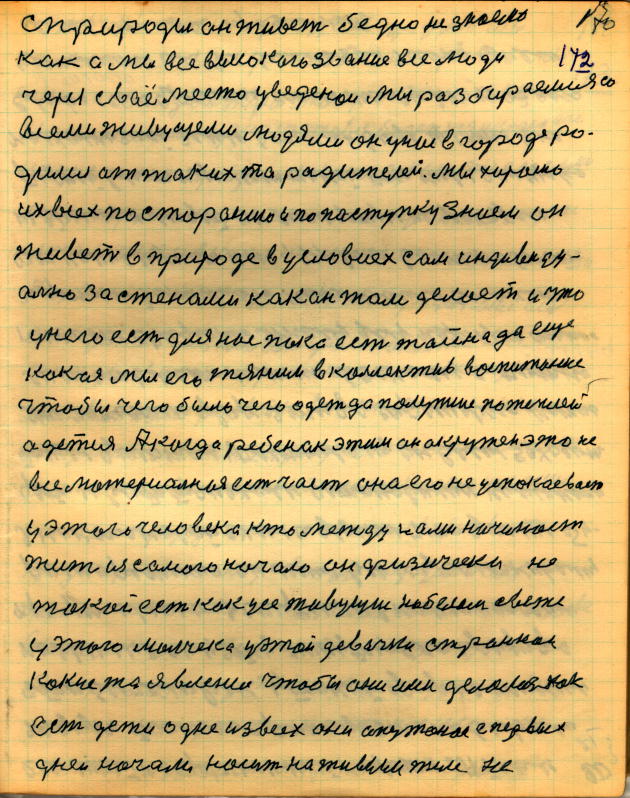 с природы он живет бедно не знаемо
как а мы все высокого звание все люди 172
через сваё место уведеной мы разбираемся со
всеми живущеми людями он у нас в городе ро-
дился от таких та радителей. мы хорошо
их всех по старанию и по паступку знаем он
живет в природе в условиех сам индивиду-
ално за стенами как он там делает и что
у него ест для нас пока ест тайна да еще
какая мы его тяним в коллектив воспитание
чтобы чего было чего одежда получше потеплей
а детия А когда ребенак этим он окружен это не
все материалная ест част она его не успокаевает
у этого человека кто между нами начинает
жит ис самого начало он физически не
такой ест как усе живущие на белом свете
у этого малчека у этой девачки странная
какие та явления чтобы они или делалось как
ест дети одне из всех они опутаное с первых
дней начали носит на живым теле не